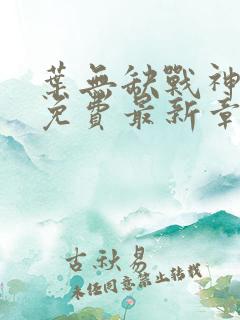 葉無缺戰神
免費最新章
古秋易
未經同意禁止轉載